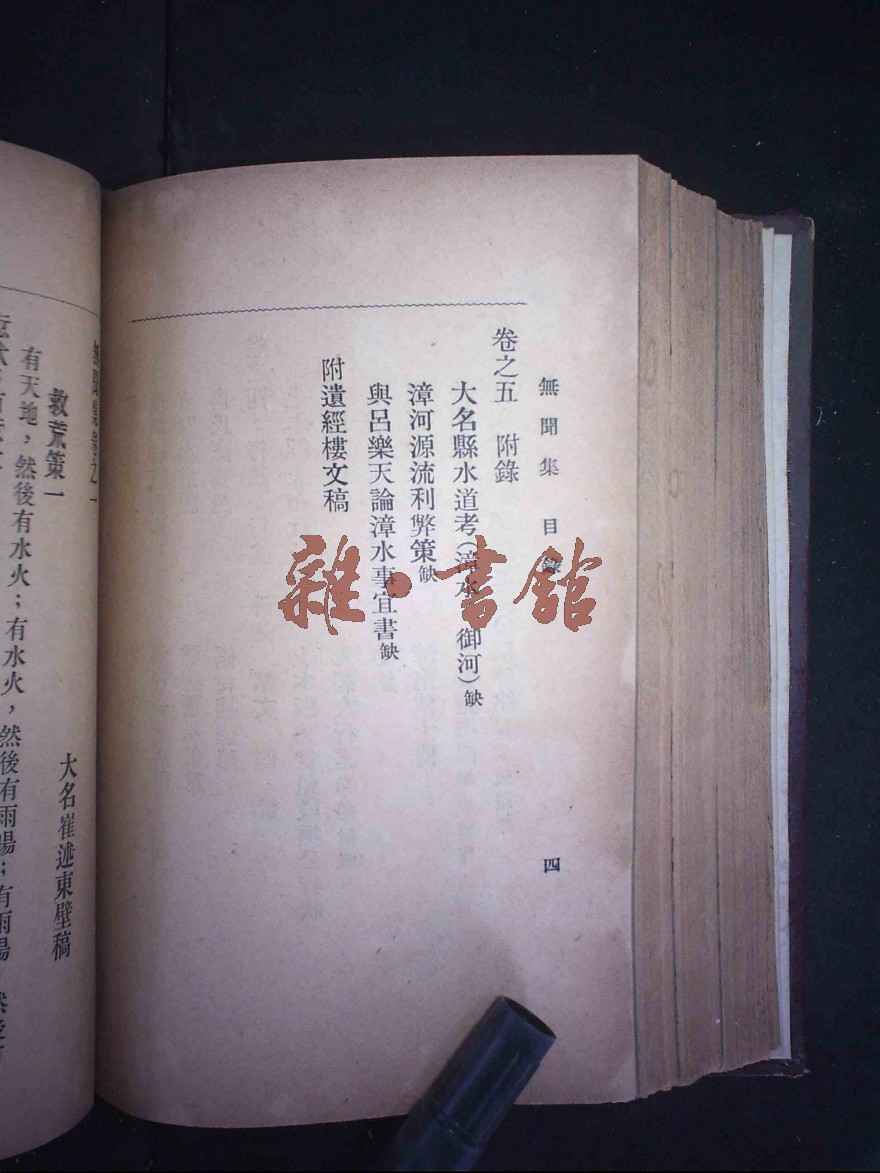 無聞集 目錄 四
卷之五 附錄
大名縣水道考(漳水 御河)缺
漳河源流利弊策缺
與呂樂天論漳水事宜書缺
附遺經樓文稿
無聞集卷之一
大名崔述東壁稿
救荒策一
有天地，然後有水火；有水火，然後有雨暘；有雨暘
雜·書館